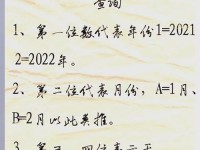 查询
1、第一位数代表年份1=2021
2=2022年。
2、第二位代表月份，A=1月、
B=2月以此类推。
3、第三、四位表示天